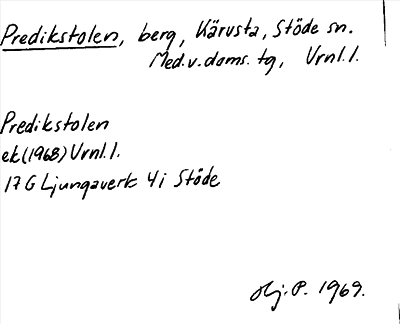 Predikstolen, berg, Kärvsta, Stöde sn.
Med.v.doms. tg, Vrnl. l.
Predikstolen
ek (1968) Vrnl. l.
17 G Ljungaverk 4 i Stöde
P. 1969.